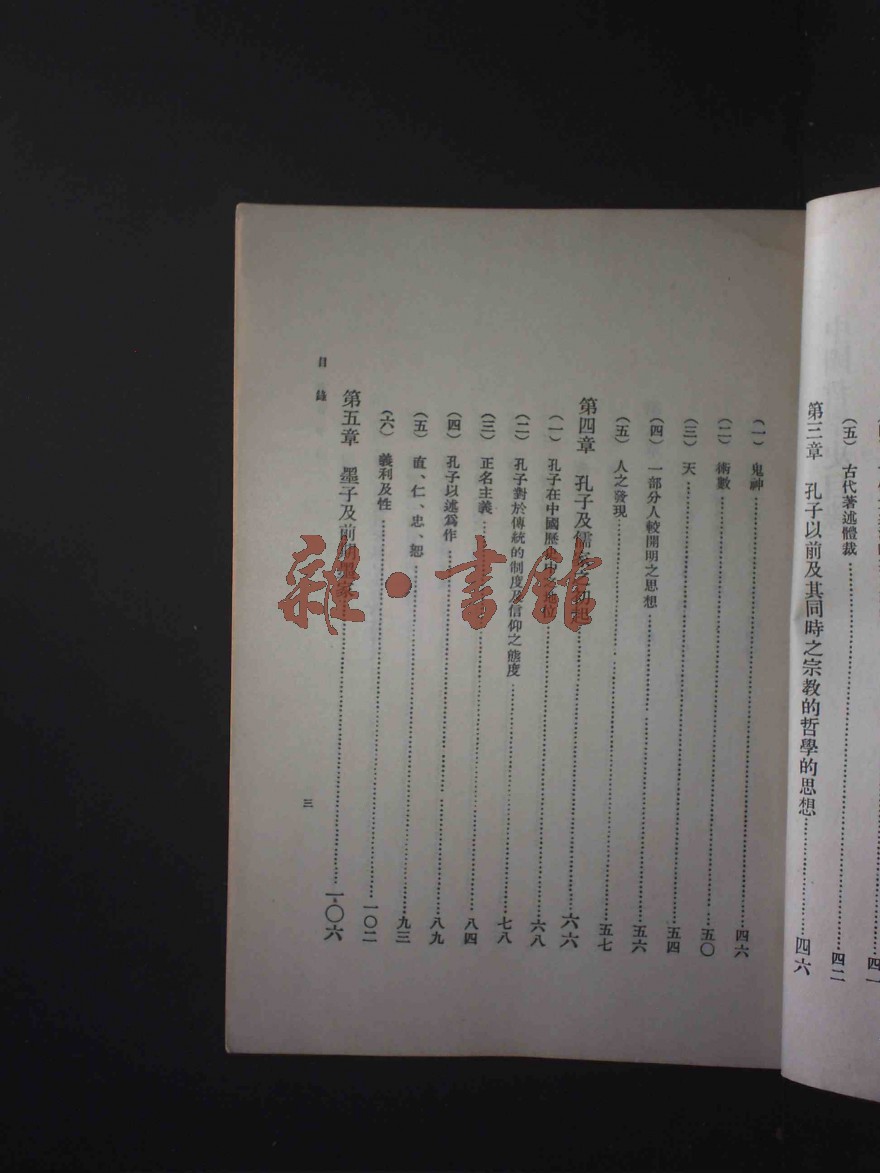 （五）　古代著述體裁……四二
第三章　孔子以前及其同時之宗教的哲學的思想……四六
（一）　鬼神……四六
（二）　術數……五〇
（三）　天……五四
（四）　一部分人較開明之思想……五六
（五）　人之發現……五七
第四章　孔子及儒家之初起……六六
（一）　孔子在中國歷史中之地位……六八
（二）　孔子對於傳統的制度及信仰之態度……七八
（三）　正名主義……八四
（四）　孔子以述爲作……八九
（五）　直、仁、忠、恕……九三
（六）　義利及性……一〇二
第五章　墨子及前期墨家……一〇六
目錄
三
雜·書館